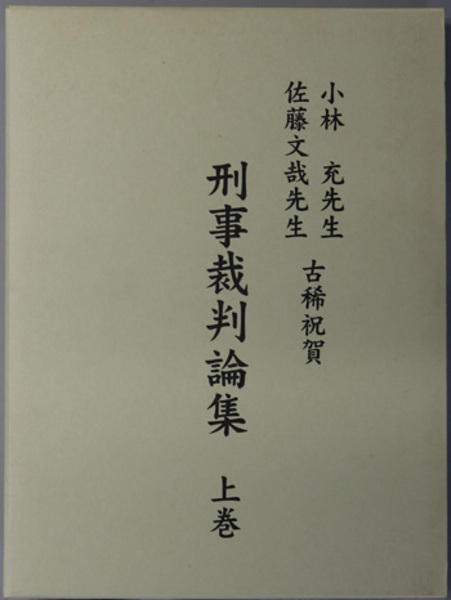 小林 充先生
佐藤文哉先生
古稀祝賀
刑事裁判論集 上巻